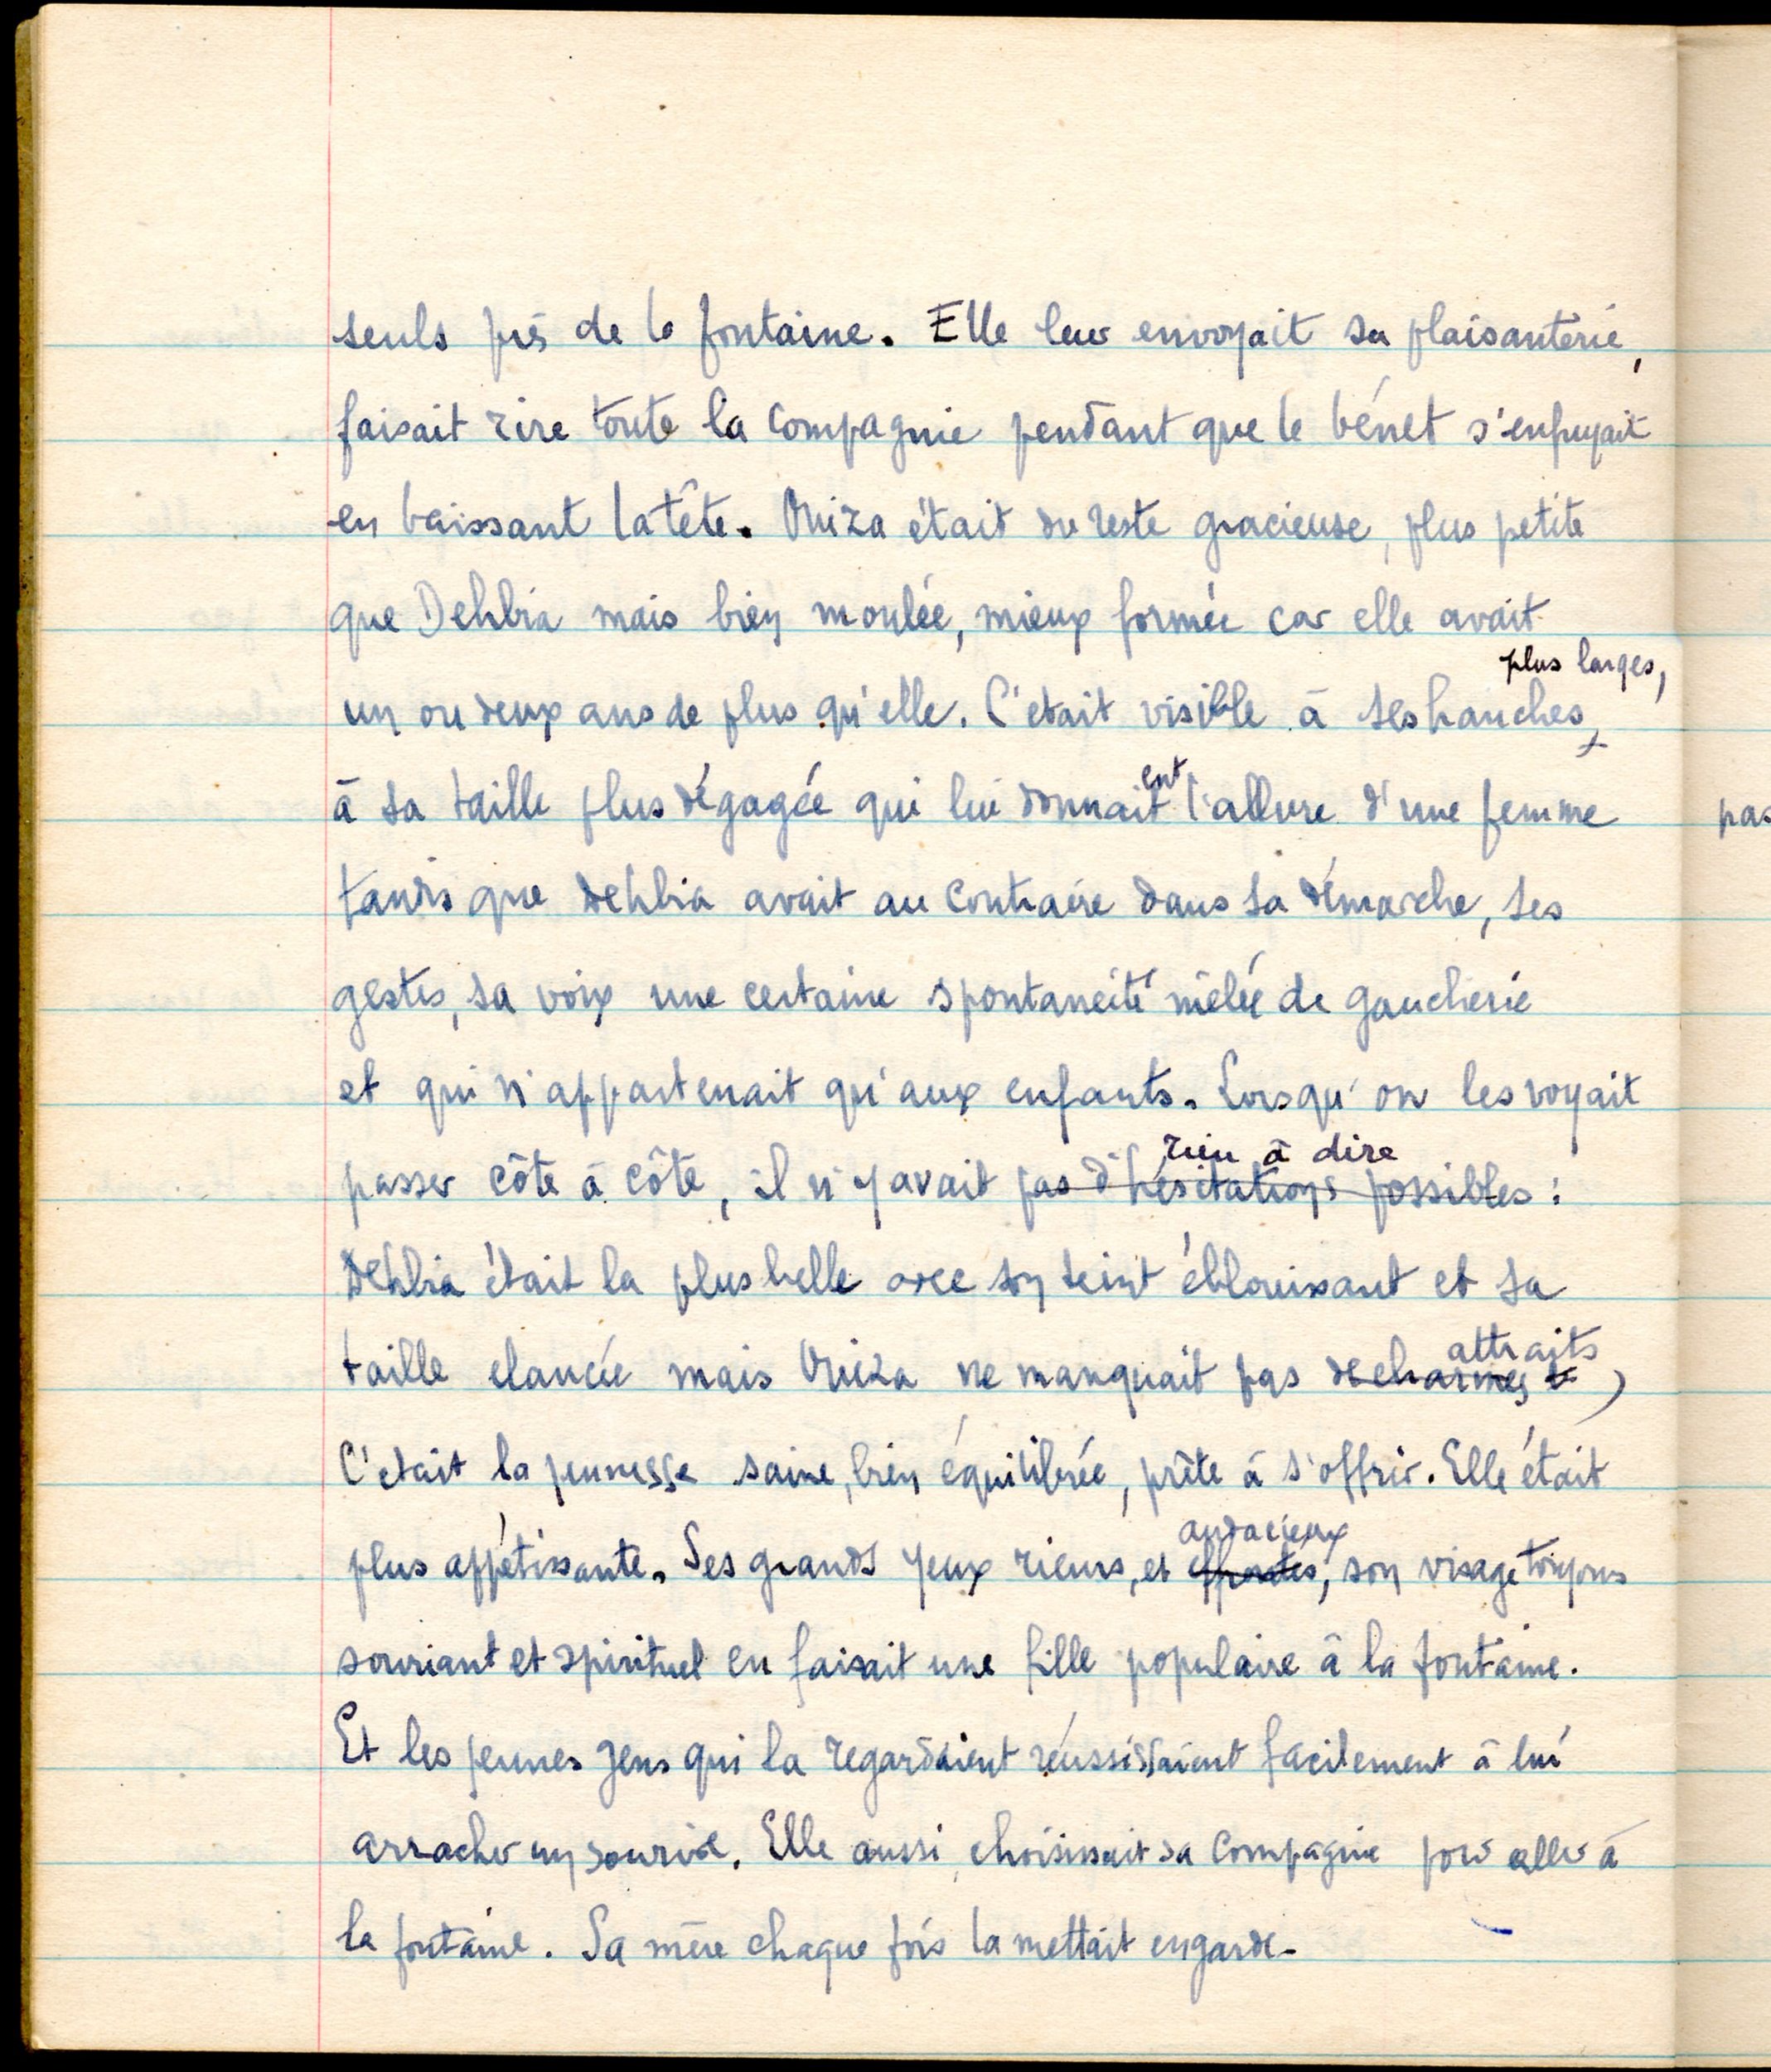 seuls près de la fontaine. Elle leur envoyait sa plaisanterie,
faisait rire toute la compagnie pendant que le bénet s'enfuyait
en baissant la tête. Ouiza était du reste gracieuse, plus petite
que Dehbia mais bien moulée, mieux formée car elle avait
plus larges,
un ou deux ans de plus qu'elle. C'etait visible à ses hanches,
ent
à sa taille plus dégagée qui lui donnait l'allure d'une femme
pas
tandis que Dehbia avait au contraire dans sa démarche, ses
gestes, sa voix une certaine spontaneité mêlée de gaucherie
et qui n'appartenait qu'aux enfants. Lorsqu'on les voyait
rien à dire
passer côte à côte, il n'y avait pas d'hésitations possibles :
Dehbia était la plus belle avec son teint éblouissant et sa
attraits
taille elancée mais Ouiza ne manquait pas de charmes
C'etait la jeunesse saine, bien équilibrée, prête à s'offrir. Elle était
audacieux
plus appétissante. Ses grands yeux rieurs, et effrontés, son visage toujours
souriant et spirituel en faisait une fille populaire à la fontaine.
Et les jeunes gens qui la regardaient réussissaient facilement à lui
arracher un sourire. Elle aussi choisissait sa compagnie pour aller à
la fontaine. Sa mère chaque fois la mettait en garde.